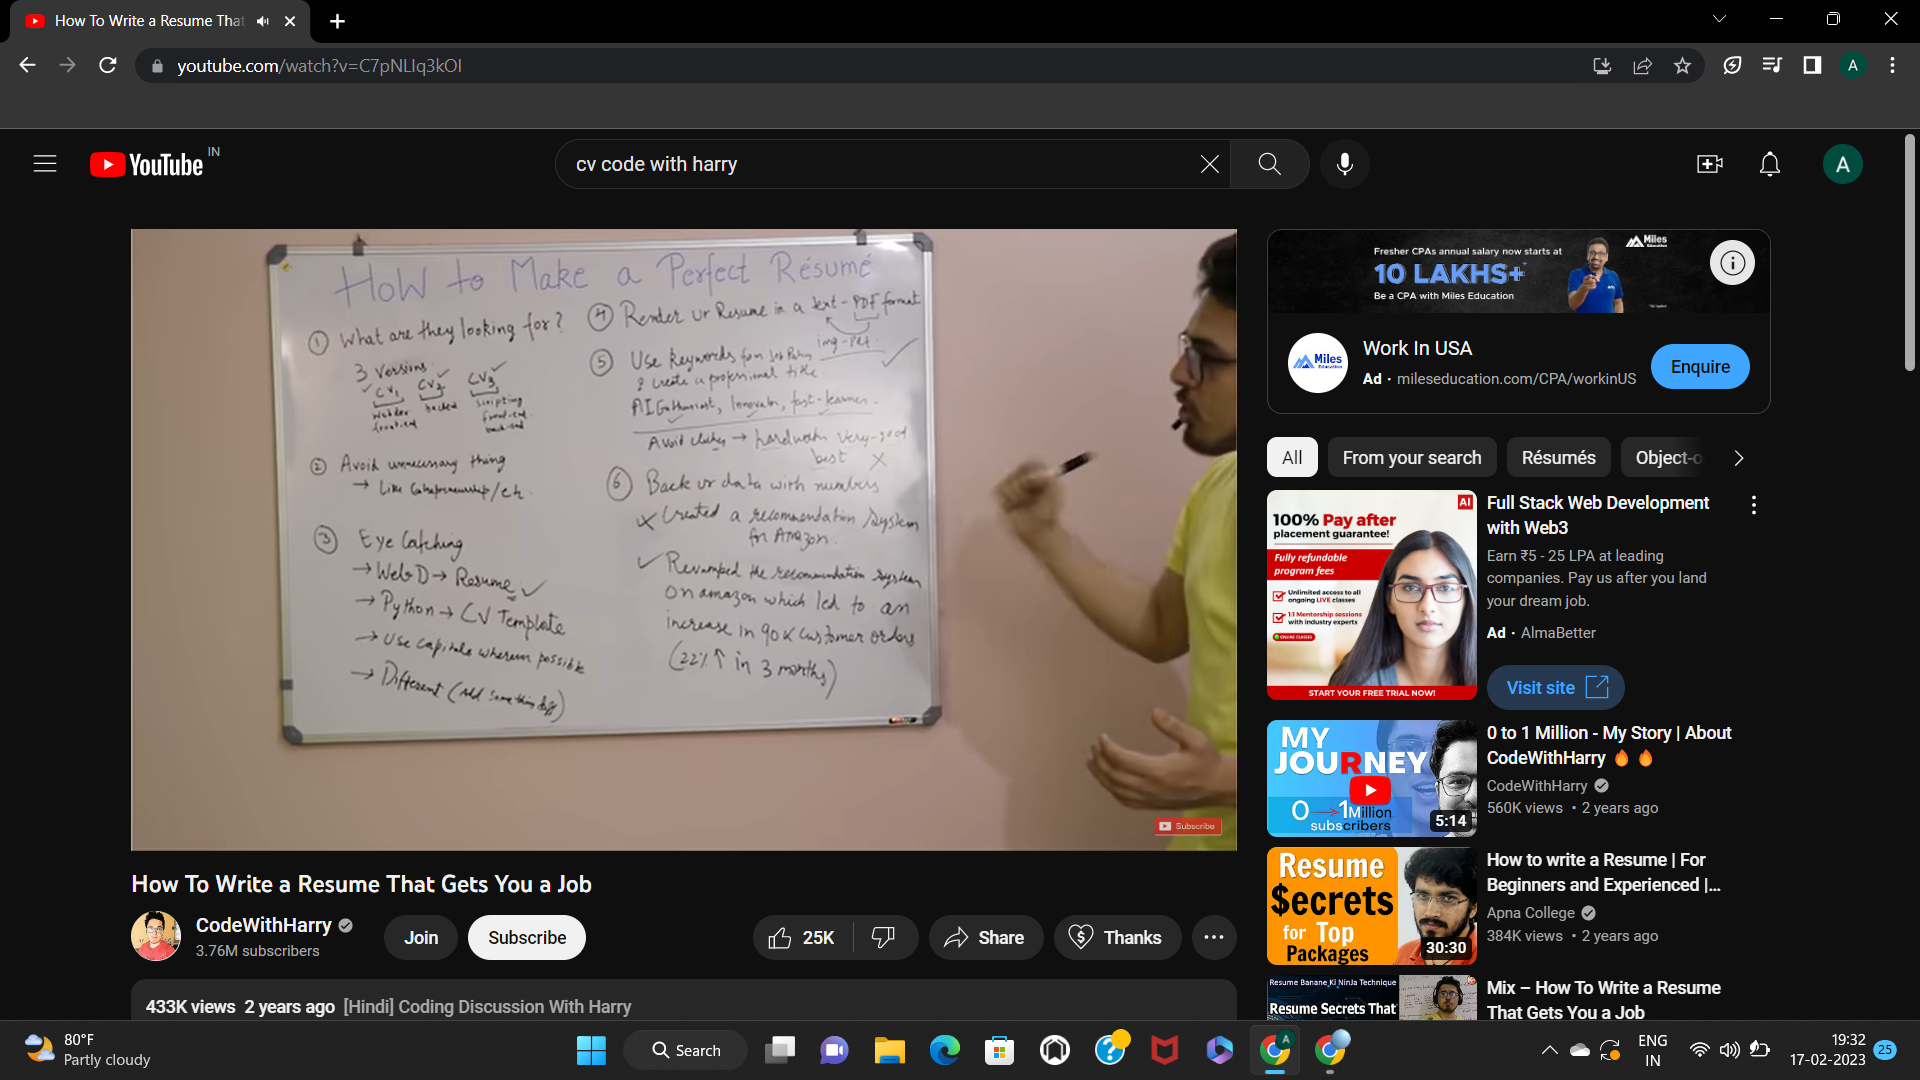 How To Write a Resume That
youtube.com/watch?v=C7pNLIq3kOI
A
YouTube IN
cv code with harry
A
HOW to Make a Perfect Résumé
① What are they looking for?
3 versions
CV1 CV2 CV3
backend
scripting
② Avoid unnecessary thing
→ Like Entrepreneurship/etc.
③ Eye Catching
→ Web D → Resume ✓
→ Python → CV Template
→ Use capitals wherever possible
→ Different (Add something diff)
④ Render ur Resume in a text-PDF format
img-PDF
⑤ Use keywords from
& create a professional title
AI Enthusiast, Innovator, fast-learner.
Avoid → hardworking very-good
best X
⑥ Back ur data with numbers
X Created a recommendation system
for Amazon.
✓ Revamped the recommendation system
on amazon which led to an
increase in 90K customer orders
(22%↑ in 3 months)
Subscribe
How To Write a Resume That Gets You a Job
CodeWithHarry
3.76M subscribers
Join
Subscribe
25K
Share
Thanks
433K views 2 years ago [Hindi] Coding Discussion With Harry
Fresher CPAs annual salary now starts at
10 LAKHS+
Be a CPA with Miles Education
Miles
Education
Miles
Education
Work In USA
Ad · mileseducation.com/CPA/workinUS
Enquire
All
From your search
Résumés
Object-o
AI
100% Pay after
placement guarantee!
Fully refundable
program fees
Unlimited access to all
ongoing LIVE classes
1:1 Mentorship sessions
with industry experts
ONLINE CLASSES
START YOUR FREE TRIAL NOW!
Full Stack Web Development
with Web3
Earn ₹5 - 25 LPA at leading
companies. Pay us after you land
your dream job.
Ad · AlmaBetter
Visit site
MY
JOURNEY
0→1Million
subscribers
5:14
0 to 1 Million - My Story | About
CodeWithHarry 🔥 🔥
CodeWithHarry
560K views • 2 years ago
Resume
$ecrets
for Top
Packages
30:30
How to write a Resume | For
Beginners and Experienced |...
Apna College
384K views • 2 years ago
Resume Banane Ki Ninja Technique
Resume Secrets That
Mix – How To Write a Resume
That Gets You a Job
80°F
Partly cloudy
Search
A
ENG
IN
19:32
17-02-2023
25